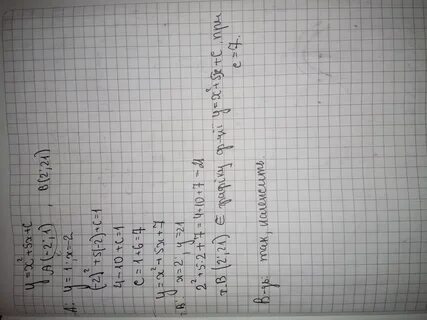 y = x² + 5x + c
A(-2; 1) , B(2; 21)
A: y = 1; x = -2
(-2)² + 5(-2) + c = 1
4 - 10 + c = 1
c = 1 + 6 = 7
y = x² + 5x + 7
B: x = 2; y = 21
2² + 5·2 + 7 = 4 + 10 + 7 = 21
т. B(2; 21) ∈ графіку ф-ції y = x² + 5x + c, при
c = 7.
В-дь: так, належить